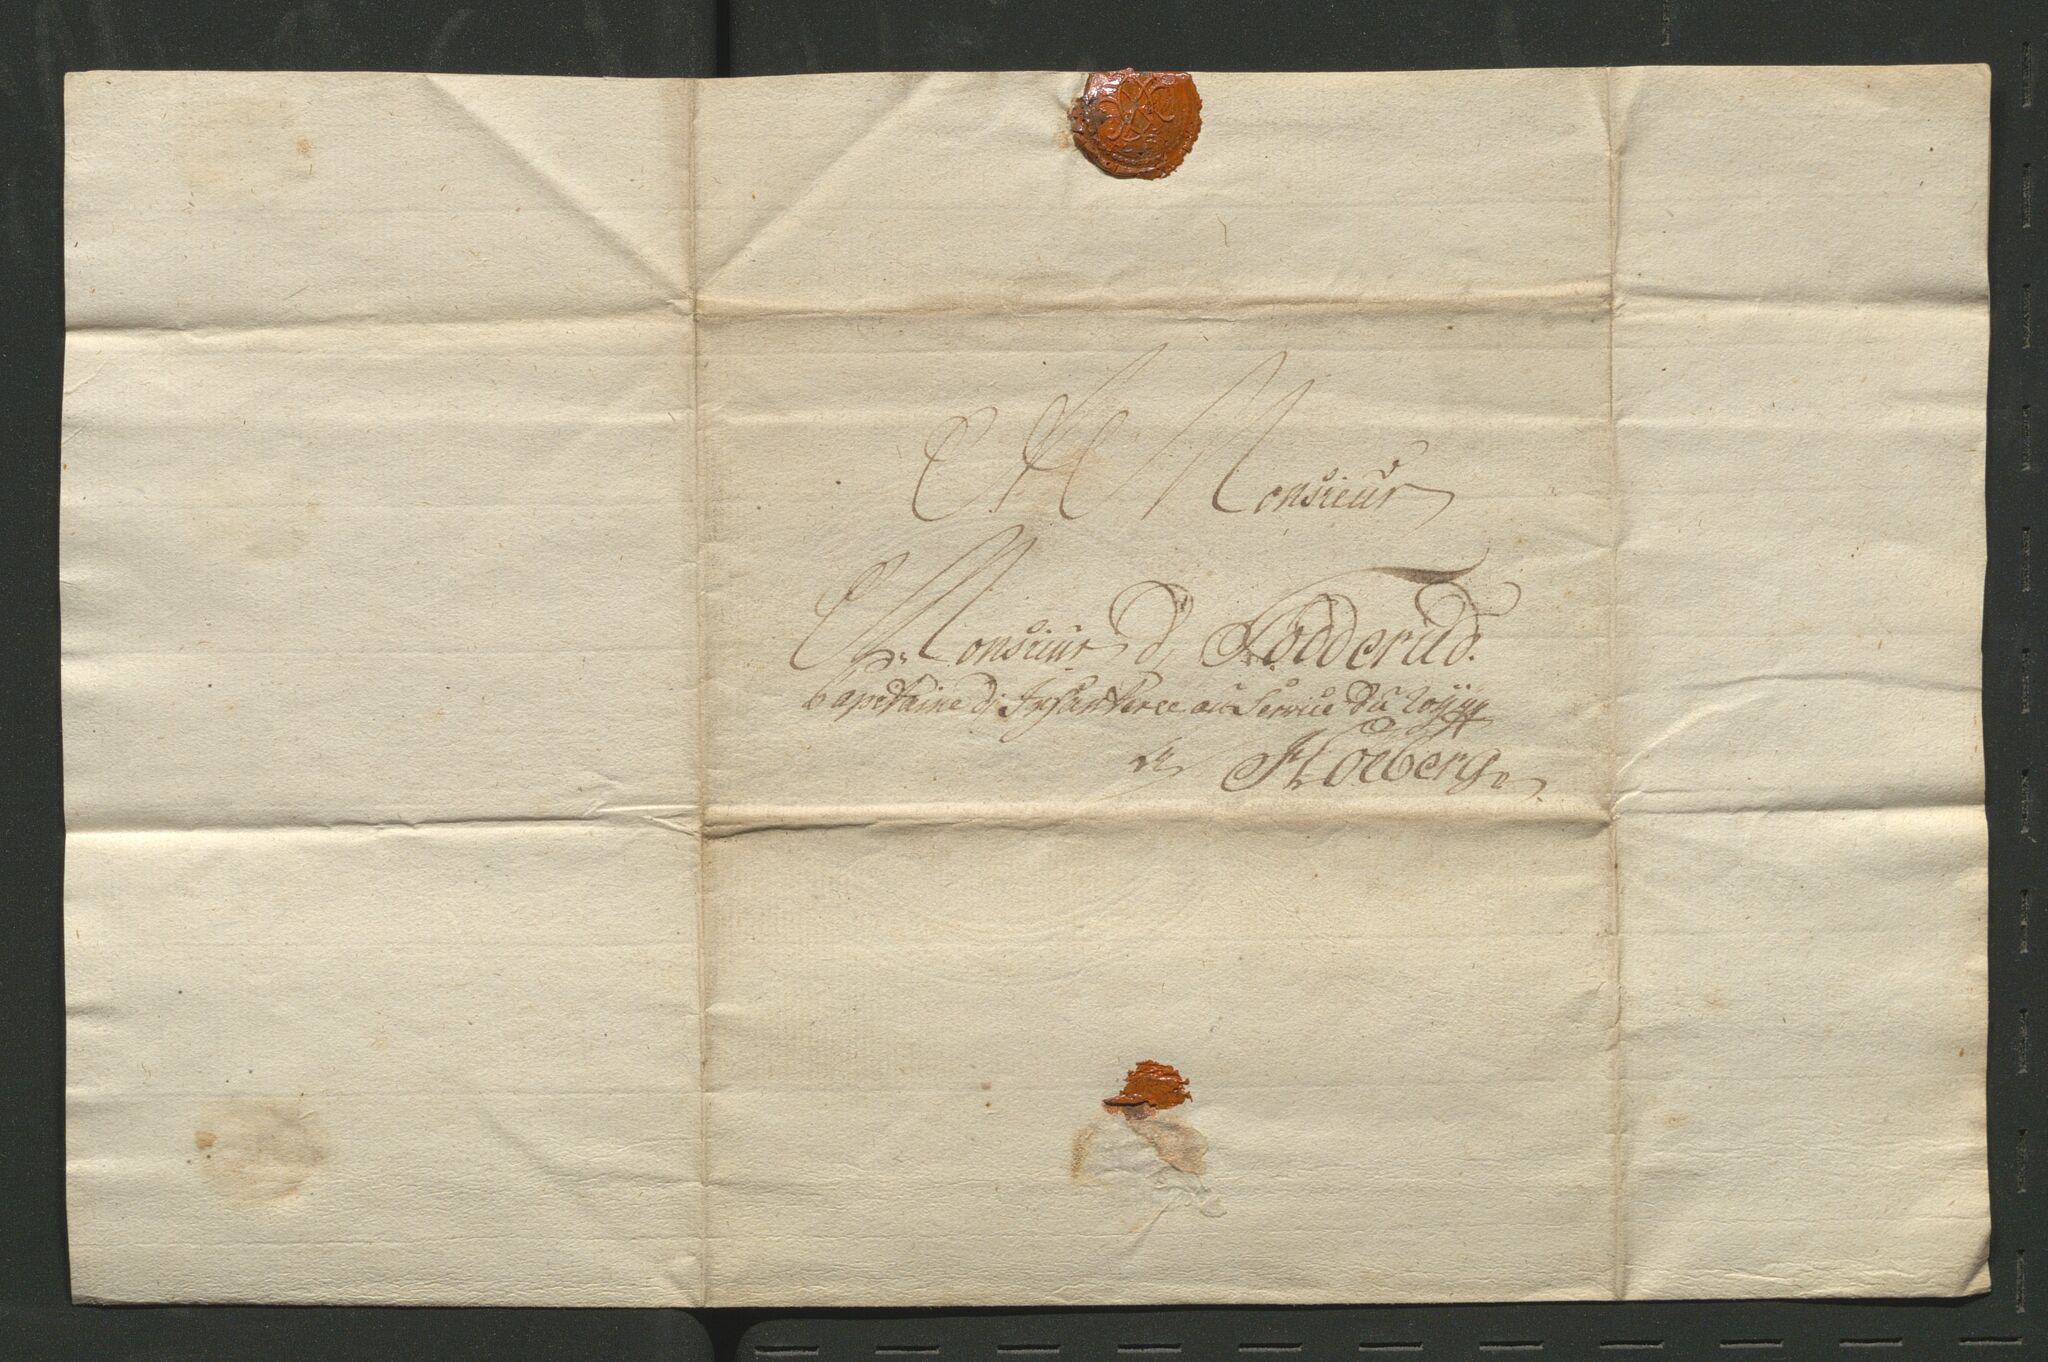 A Monsieur
Monsieur d, Todderud.
Capetaine d, Infanterce au Service du Roÿ
a Høeberg